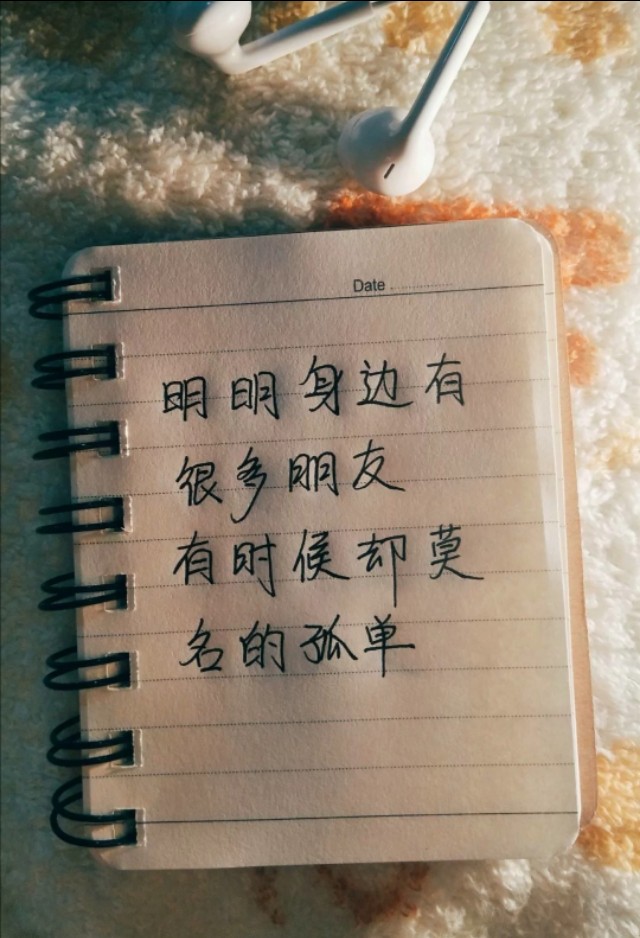 Date
明明身边有
很多朋友
有时候却莫
名的孤单